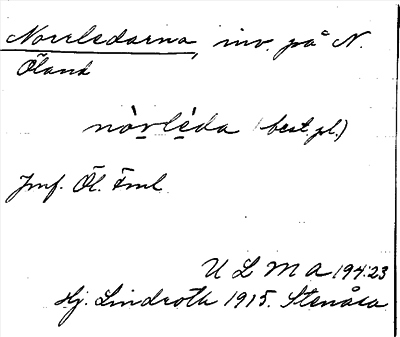 Norrledarna, inv. på N.
Öland
nòrléda (best. pl.)
Jmf. Öl. Fml
ULMA 194:23
Hj. Lindroth 1915. Stenåsa